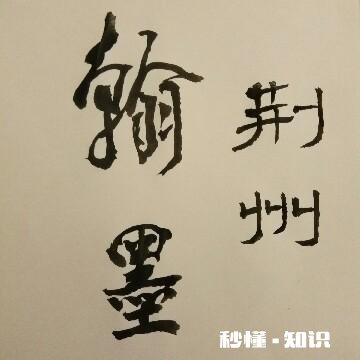 荆州
翰墨
秒懂·知识